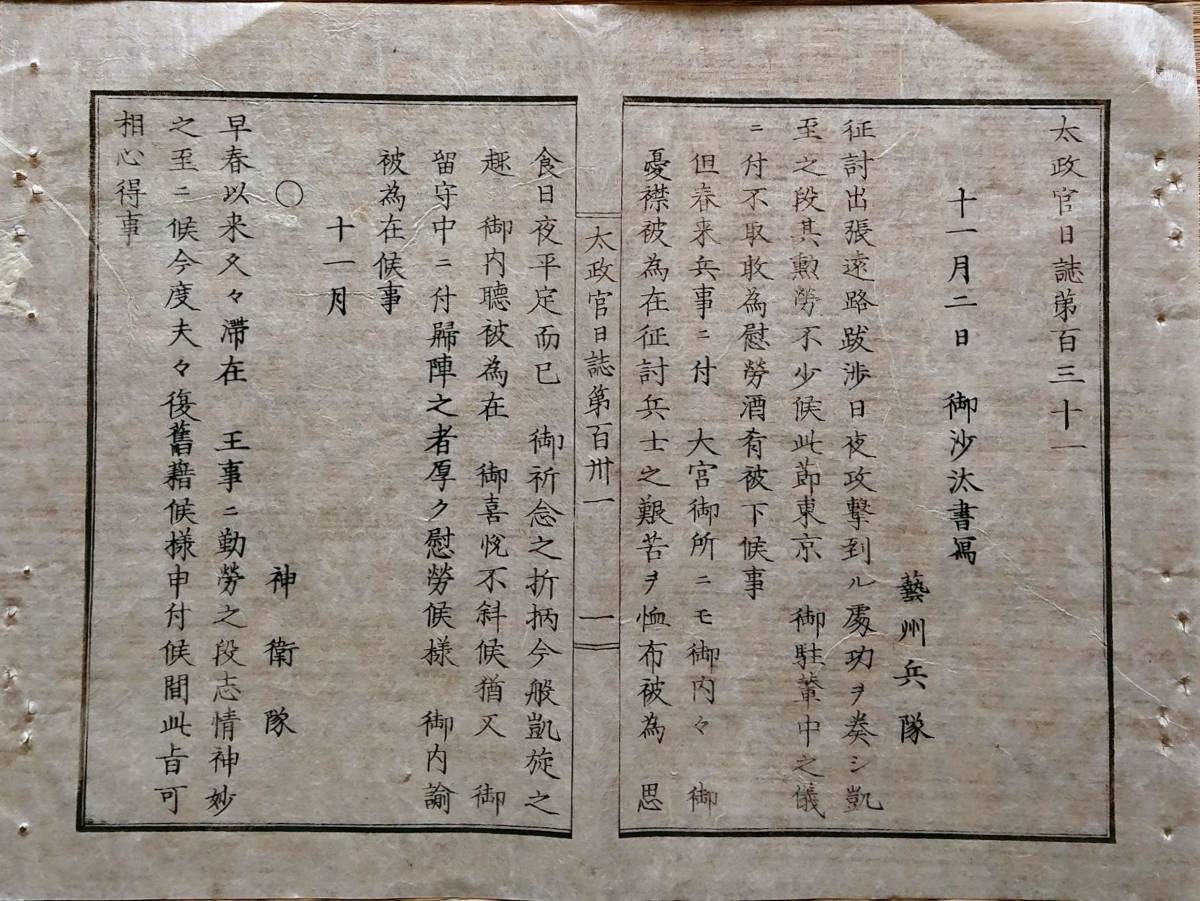 太政官日誌第百三十一
十一月二日　御沙汰書寫
藝州兵隊
征討出張遠路跋渉日夜攻擊到ル處功ヲ奏シ凱
至之段其勲勞不少候此節東京　御駐輦中之儀
ニ付不取敢為慰勞酒肴被下候事
但春来兵事ニ付　大宮御所ニモ御内々　御
憂襟被為在征討兵士之艱苦ヲ恤布被為　思
太政官日誌第百卅一　一
食日夜平定而已　御祈念之折柄今般凱旋之
趣　御内聽被為在　御喜悦不斜候猶又　御
留守中ニ付歸陣之者厚ク慰勞候様　御内諭
被為在候事
十一月
〇　神衛隊
早春以来久々滯在　王事ニ勤勞之段志情神妙
之至ニ候今度夫々復舊籍候様申付候間此旨可
相心得事